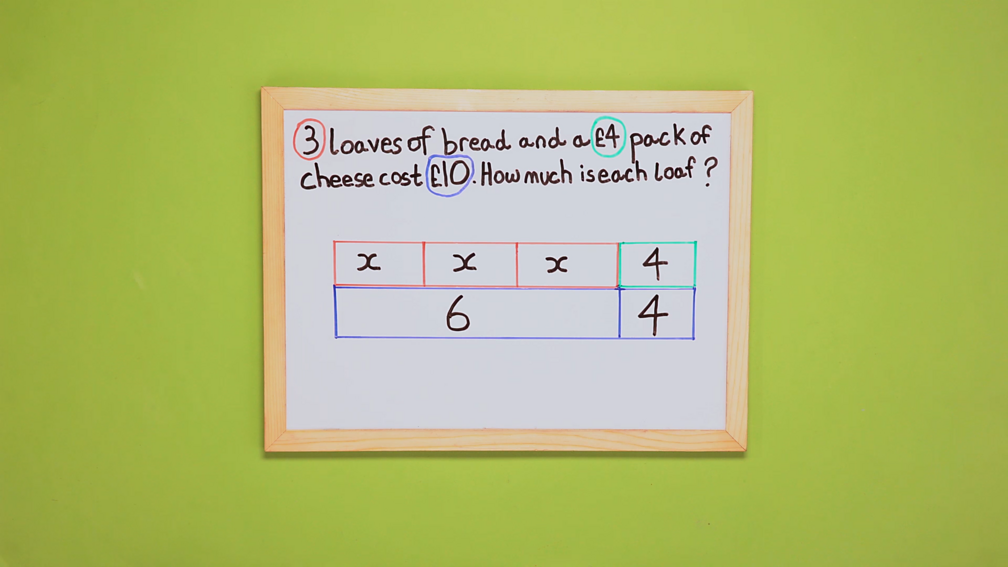 3 loaves of bread and a £4 pack of
cheese cost £10. How much is each loaf?
x x x 4
6 4